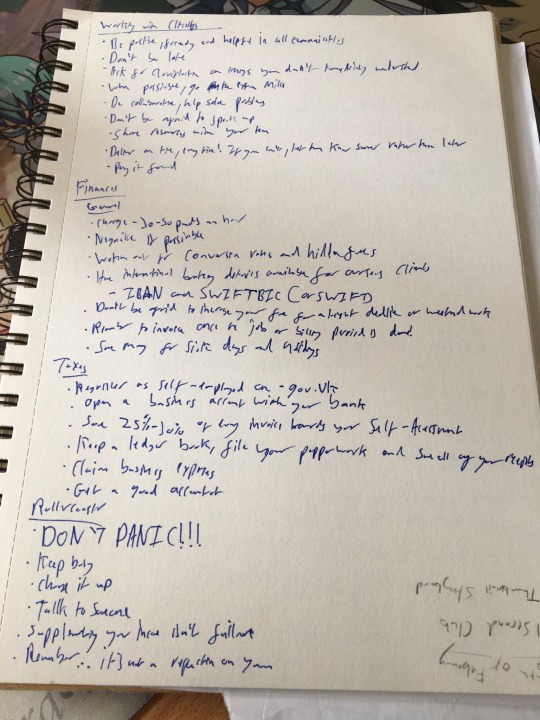 Working with Clients
· Be positive, friendly and helpful in all communications
· Don't be late
· Ask for clarification on things you don't completely understand
· When possible, go the extra mile
· Be collaborative, help solve problems
· Don't be afraid to speak up
· Share resources with your team
· Deliver on time, every time! If you can't, let them know sooner rather than later
· Pay it forward
Finances
General
· Charge - 30-50 pounds an hour
· Negotiate if possible
· Watch out for conversion rates and hidden fees
· Have international banking details available for overseas clients
- IBAN and SWIFTBIC (or SWIFT)
· Don't be afraid to increase your fee for a tight deadline or weekend work
· Remember to invoice once the job or billing period is done
· Save money for sick days and holidays
Taxes
· Register as self-employed on - gov.uk
· Open a business account with your bank
· Save 25%-30% of every invoice towards your Self-Assessment
· Keep a ledger book, file your papperwork and save all of your receipts
· Claim business expenses
· Get a good accountant
Rollercoaster
· DON'T PANIC!!!
· Keep busy
· Change it up
· Talk to someone
· Supplementing your income isn't failure
· Remember... it's not a reflection on you
Thumbnail Storyboard
Second Club
of February